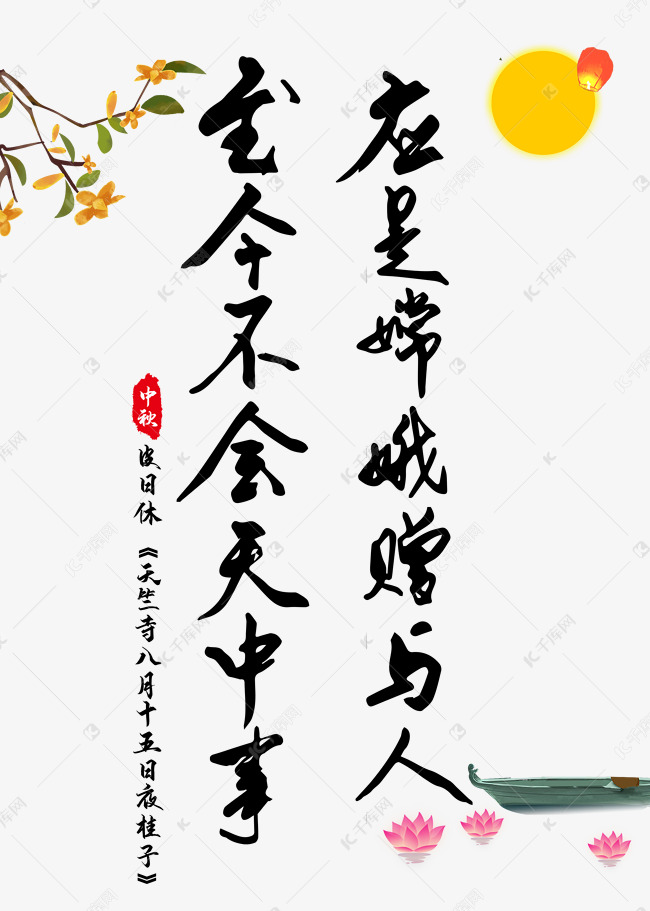 应是嫦娥赠与人
至今不会天中事
中秋
皮日休《天竺寺八月十五日夜桂子》
千库网